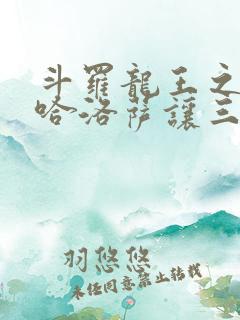 斗羅龍王之
哈洛薩讓三
羽悠悠
未經同意禁止轉載